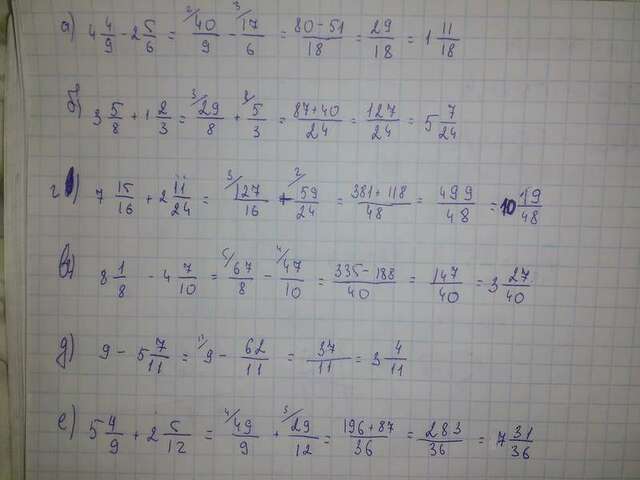 а) 4 4/9 - 2 5/6 = ²/40/9 - ³/17/6 = 80-51/18 = 29/18 = 1 11/18
б) 3 5/8 + 1 2/3 = ³/29/8 + ⁸/5/3 = 87+40/24 = 127/24 = 5 7/24
г) 7 15/16 + 2 11/24 = ³/127/16 + ²/59/24 = 381+118/48 = 499/48 = 10 19/48
в) 8 1/8 - 4 7/10 = ⁵/67/8 - ⁴/47/10 = 335-188/40 = 147/40 = 3 27/40
д) 9 - 5 7/11 = ¹¹/9 - 62/11 = 37/11 = 3 4/11
е) 5 4/9 + 2 5/12 = ⁴/49/9 + ³/29/12 = 196+87/36 = 283/36 = 7 31/36